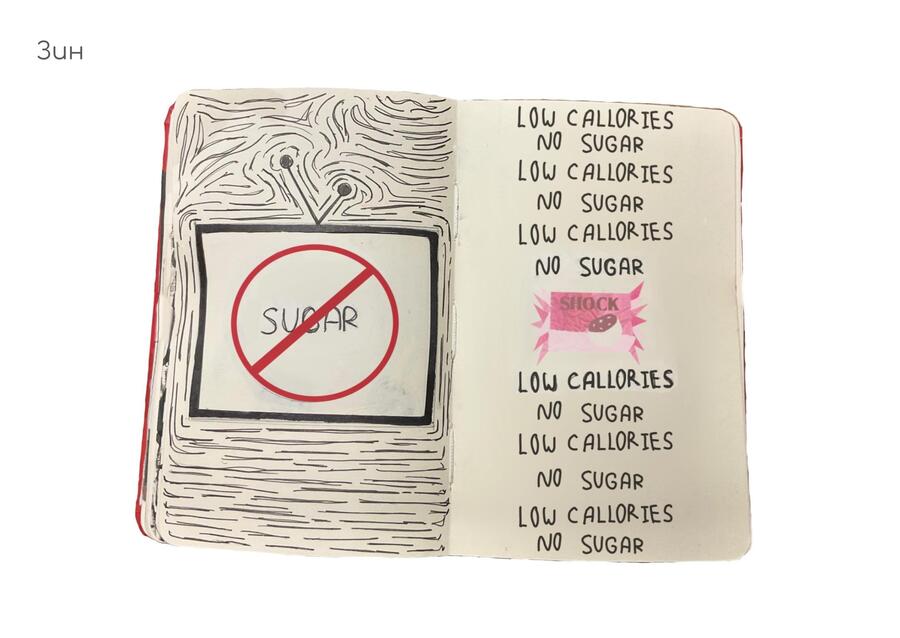 Зин
SUGAR
LOW CALLORIES
NO SUGAR
LOW CALLORIES
NO SUGAR
LOW CALLORIES
NO SUGAR
SHOCK
LOW CALLORIES
NO SUGAR
LOW CALLORIES
NO SUGAR
LOW CALLORIES
NO SUGAR